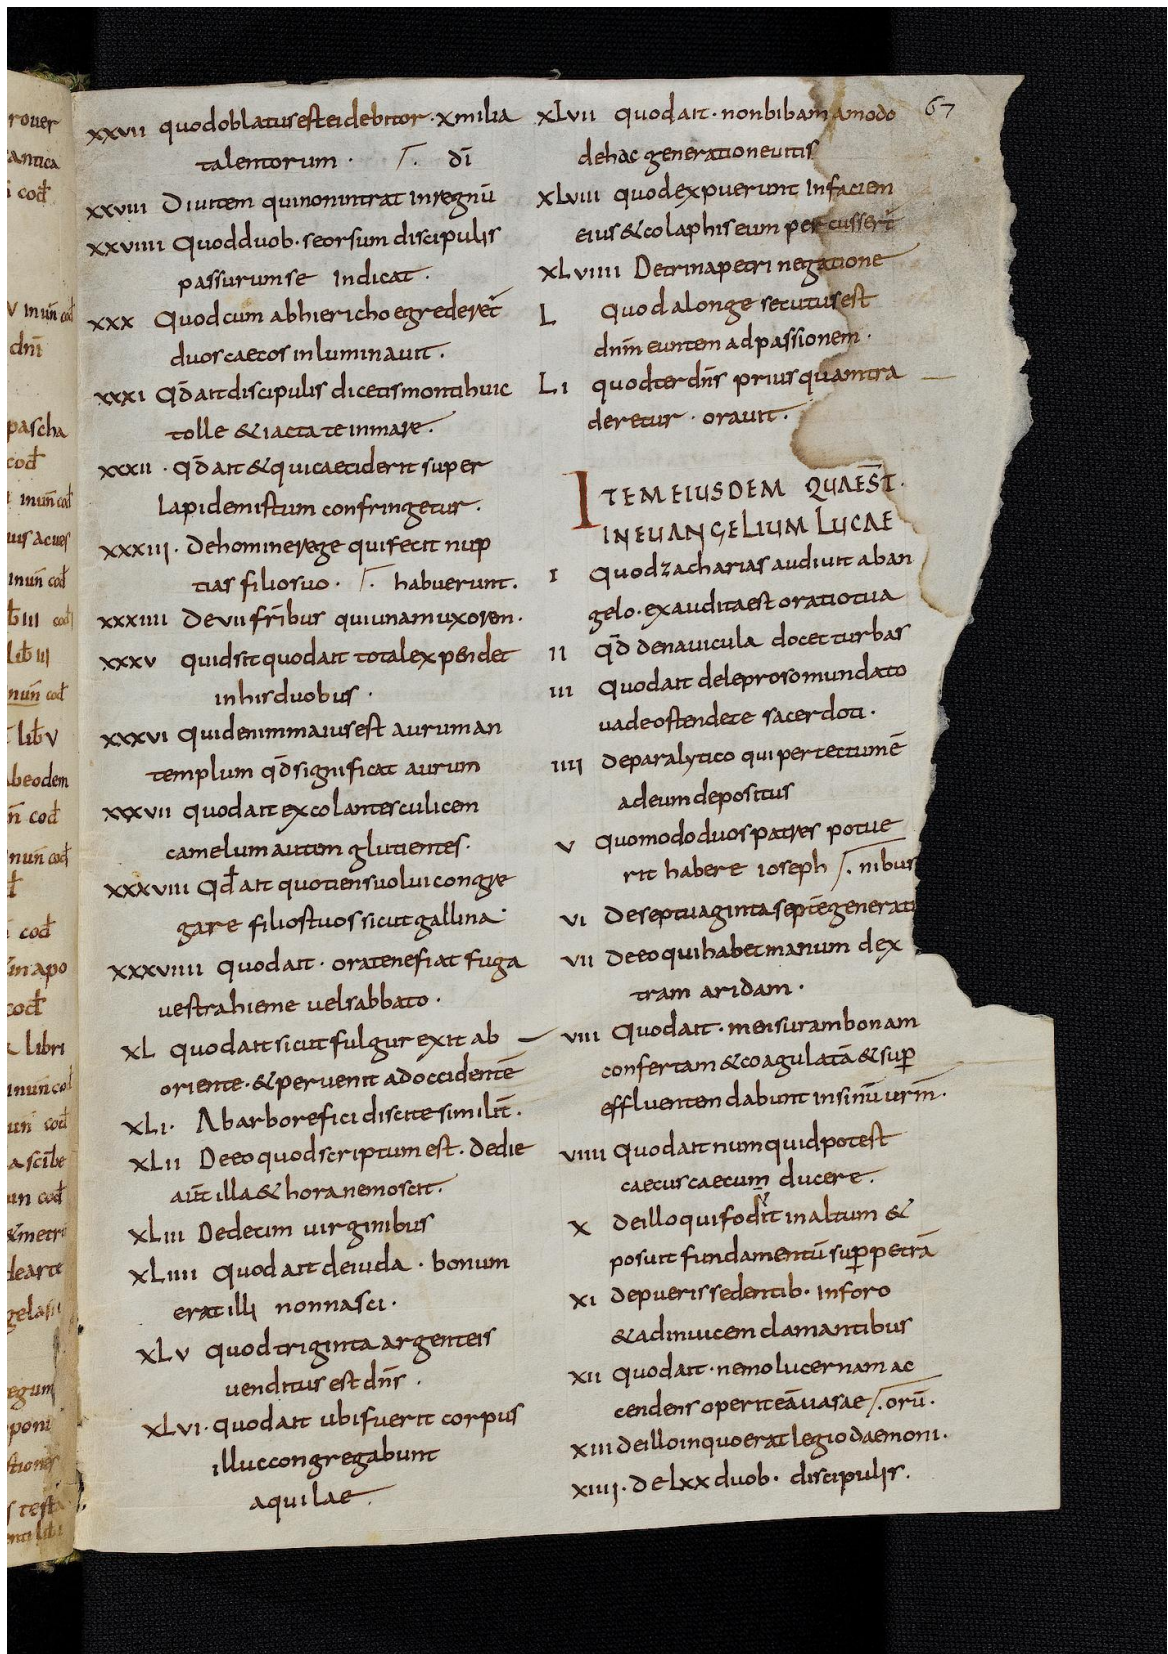 67
xxvii quodoblatus est ei debitor · x milia
talentorum · /. dī
xxviii Diuitem qui non intrat in regnū
xxviiii Quod duob · seorsum discipulis
passurum se indicat ·
xxx Quod cum ab hiericho egrederet̄
duos caecos inluminauit ·
xxxi Qd̄ ait discipulis dicetis monti huic
tolle & iacta te in mare ·
xxxii · qd̄ ait & qui caeciderit super
lapidem istum confringetur ·
xxxiii · De homine rege qui fecit nup
tias filio suo · /. habuerunt ·
xxxiiii De vii frībus qui unam uxorem ·
xxxv quid sit quod ait tota lex pendet
in his duobus ·
xxxvi Quid enim maius est aurum an
templum qd̄ significat aurum
xxxvii quod ait excolantes culicem
camelum autem glutientes ·
xxxviii Qd̄ ait quotiens uolui congre
gare filios tuos sicut gallina ·
xxxviiii quod ait · orate ne fiat fuga
uestra hieme uel sabbato ·
xL quod ait sicut fulgur exit ab
oriente · & peruenit ad occidentē
xLi · Ab arbore fici discite similit̄ ·
xLii De eo quod scriptum est · de die
aūt illa & hora nemo scit ·
xLiii De decem uirginibus
xLiiii quod ait de iuda · bonum
erat illi non nasci ·
xLv quod triginta argenteis
uenditus est dn̄s ·
xLvi · quod ait ubi fuerit corpus
illuc congregabunt
aquilae ·
xLvii quod ait · non bibam amodo
de hac generatione uitis
xLviii quod expuerunt in faciem
eius & colaphis eum percusser̄
xLviiii De trina petri negatione
L Quod a longe secutus est
dnm̄ euntem ad passionem ·
Li quod ter dn̄s prius quam tra
deretur · orauit ·
ITEM EIUSDEM QUAEST̄ ·
IN EUANGELIUM LUCAE
i Quod zacharias audiuit ab an
gelo · exaudita est oratio tua
ii qd̄ de nauicula docet turbas
iii Quod ait de leproso mundato
uade ostende te sacerdoti ·
iiii De paralytico qui per tectum ē
ad eum depositus
v quomodo duos patres potue
rit habere ioseph /. nibus
vi De septuaginta septē generati
vii De eo qui habet manum dex
tram aridam ·
viii Quod ait · mensuram bonam
confertam & coagulatā & sup̄
effluentem dabunt in sinū urm̄ ·
viiii Quod ait numquid potest
caecus caecum ducere ·
x De illo qui fodit in altum &
posuit fundamentū sup̄ petrā
xi De pueris sedentib · in foro
& ad inuicem clamantibus
xii Quod ait · nemo lucernam ac
cendens operit eā uasae /. orū ·
xiii De illo in quo erat legio daemoni ·
xiiii · De lxx duob · discipulis ·